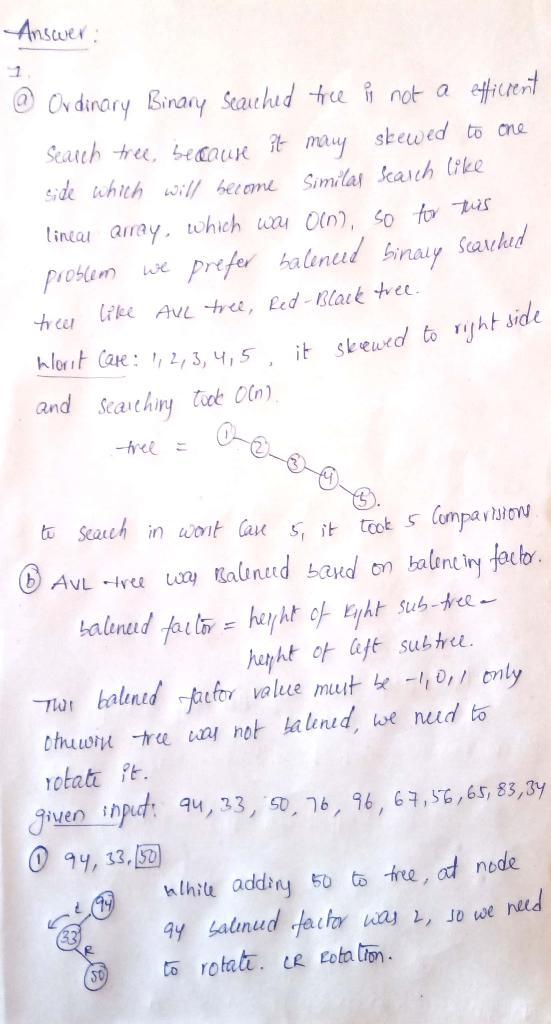 Answer:
1.
(a) Ordinary Binary Searched tree is not a efficient
Search tree, because it may skewed to one
side which will become Similar Search like
linear array. which was O(n), so for this
problem we prefer balenced binary searched
trees like AVL tree, Red-Black tree.
Worst Case: 1, 2, 3, 4, 5, it skewed to right side
and searching took O(n).
tree = 1 2 3 4 5.
to seach in worst Case 5, it took 5 Comparisions
(b) AVL tree way Balenced based on balencing factor.
balenced factor = height of Right sub-tree -
height of left subtree.
This balened factor value must be -1, 0, 1 only
Otherwise tree was not balened, we need to
rotate it.
given input: 94, 33, 50, 76, 96, 67, 56, 65, 83, 34
(1) 94, 33, 50
While adding 50 to tree, at node
94 balenced factor was 2, so we need
to rotate. LR Rotation.
L 94
33
R
50